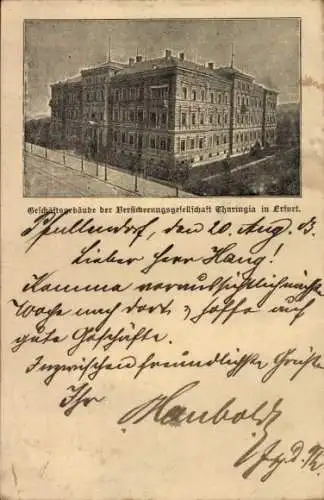 Geschäftsgebäude der Versicherungsgesellschaft Thuringia in Erfurt.
Pfullendorf, den 20 Aug. 03.
Lieber Herr Haug!
Komme voraussichtlich nächste
Woche nach dort & hoffe auf
gute Geschäfte.
Inzwischen freundlichste Grüße
Ihr
Haubold